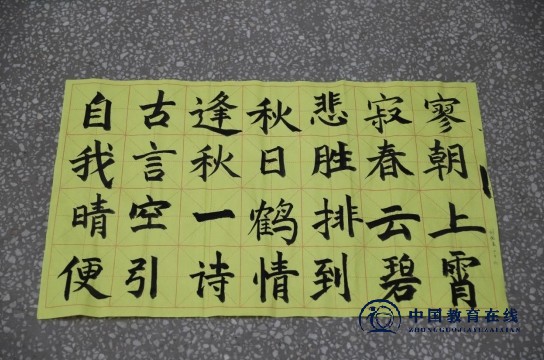 自古逢秋悲寂寥
我言秋日胜春朝
晴空一鹤排云上
便引诗情到碧霄
中国教育在线